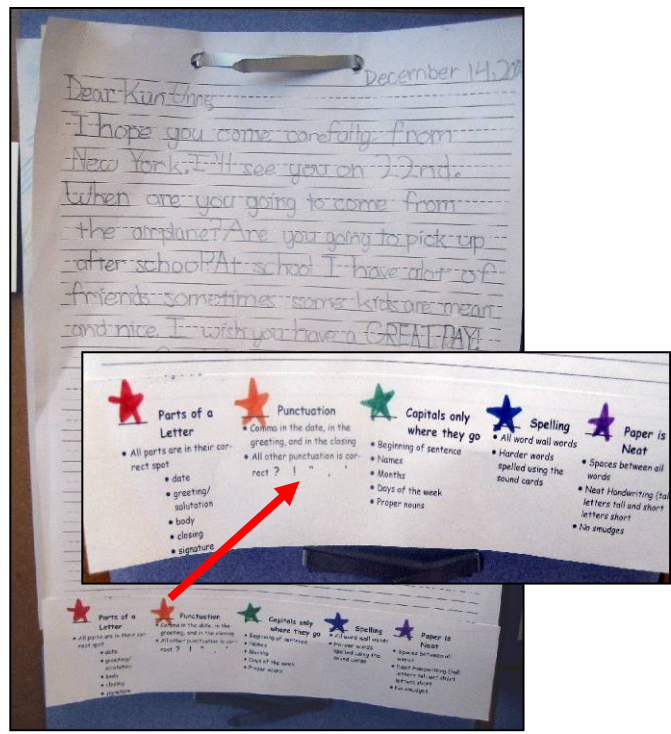 December 14, 20
Dear Kun Unne,
I hope you come carefully from
New York. I'll see you on 22nd.
When are you going to come from
the airplane? Are you going to pick up
after school? At school I have alot of
friends sometimes some kids are mean
and nice. I wish you have a GREAT DAY!
Parts of a
Letter
• All parts are in their cor-
rect spot
• date
• greeting/
salutation
• body
• closing
• signature
Punctuation
• Comma in the date, in the
greeting, and in the closing
• All other punctuation is cor-
rect ? ! " . '
Capitals only
where they go
• Beginning of sentence
• Names
• Months
• Days of the week
• Proper nouns
Spelling
• All word wall words
• Harder words
spelled using the
sound cards
Paper is
Neat
• Spaces between all
words
• Neat Handwriting (tall
letters tall and short
letters short
• No smudges
Parts of a
Letter
• All parts are in their cor-
rect spot
• date
• greeting/
salutation
• body
• closing
• signature
Punctuation
• Comma in the date, in the
greeting, and in the closing
• All other punctuation is cor-
rect ? ! " . '
Capitals only
where they go
• Beginning of sentence
• Names
• Months
• Days of the week
• Proper nouns
Spelling
• All word wall words
• Harder words
spelled using the
sound cards
Paper is
Neat
• Spaces between all
words
• Neat Handwriting (tall
letters tall and short
letters short
• No smudges